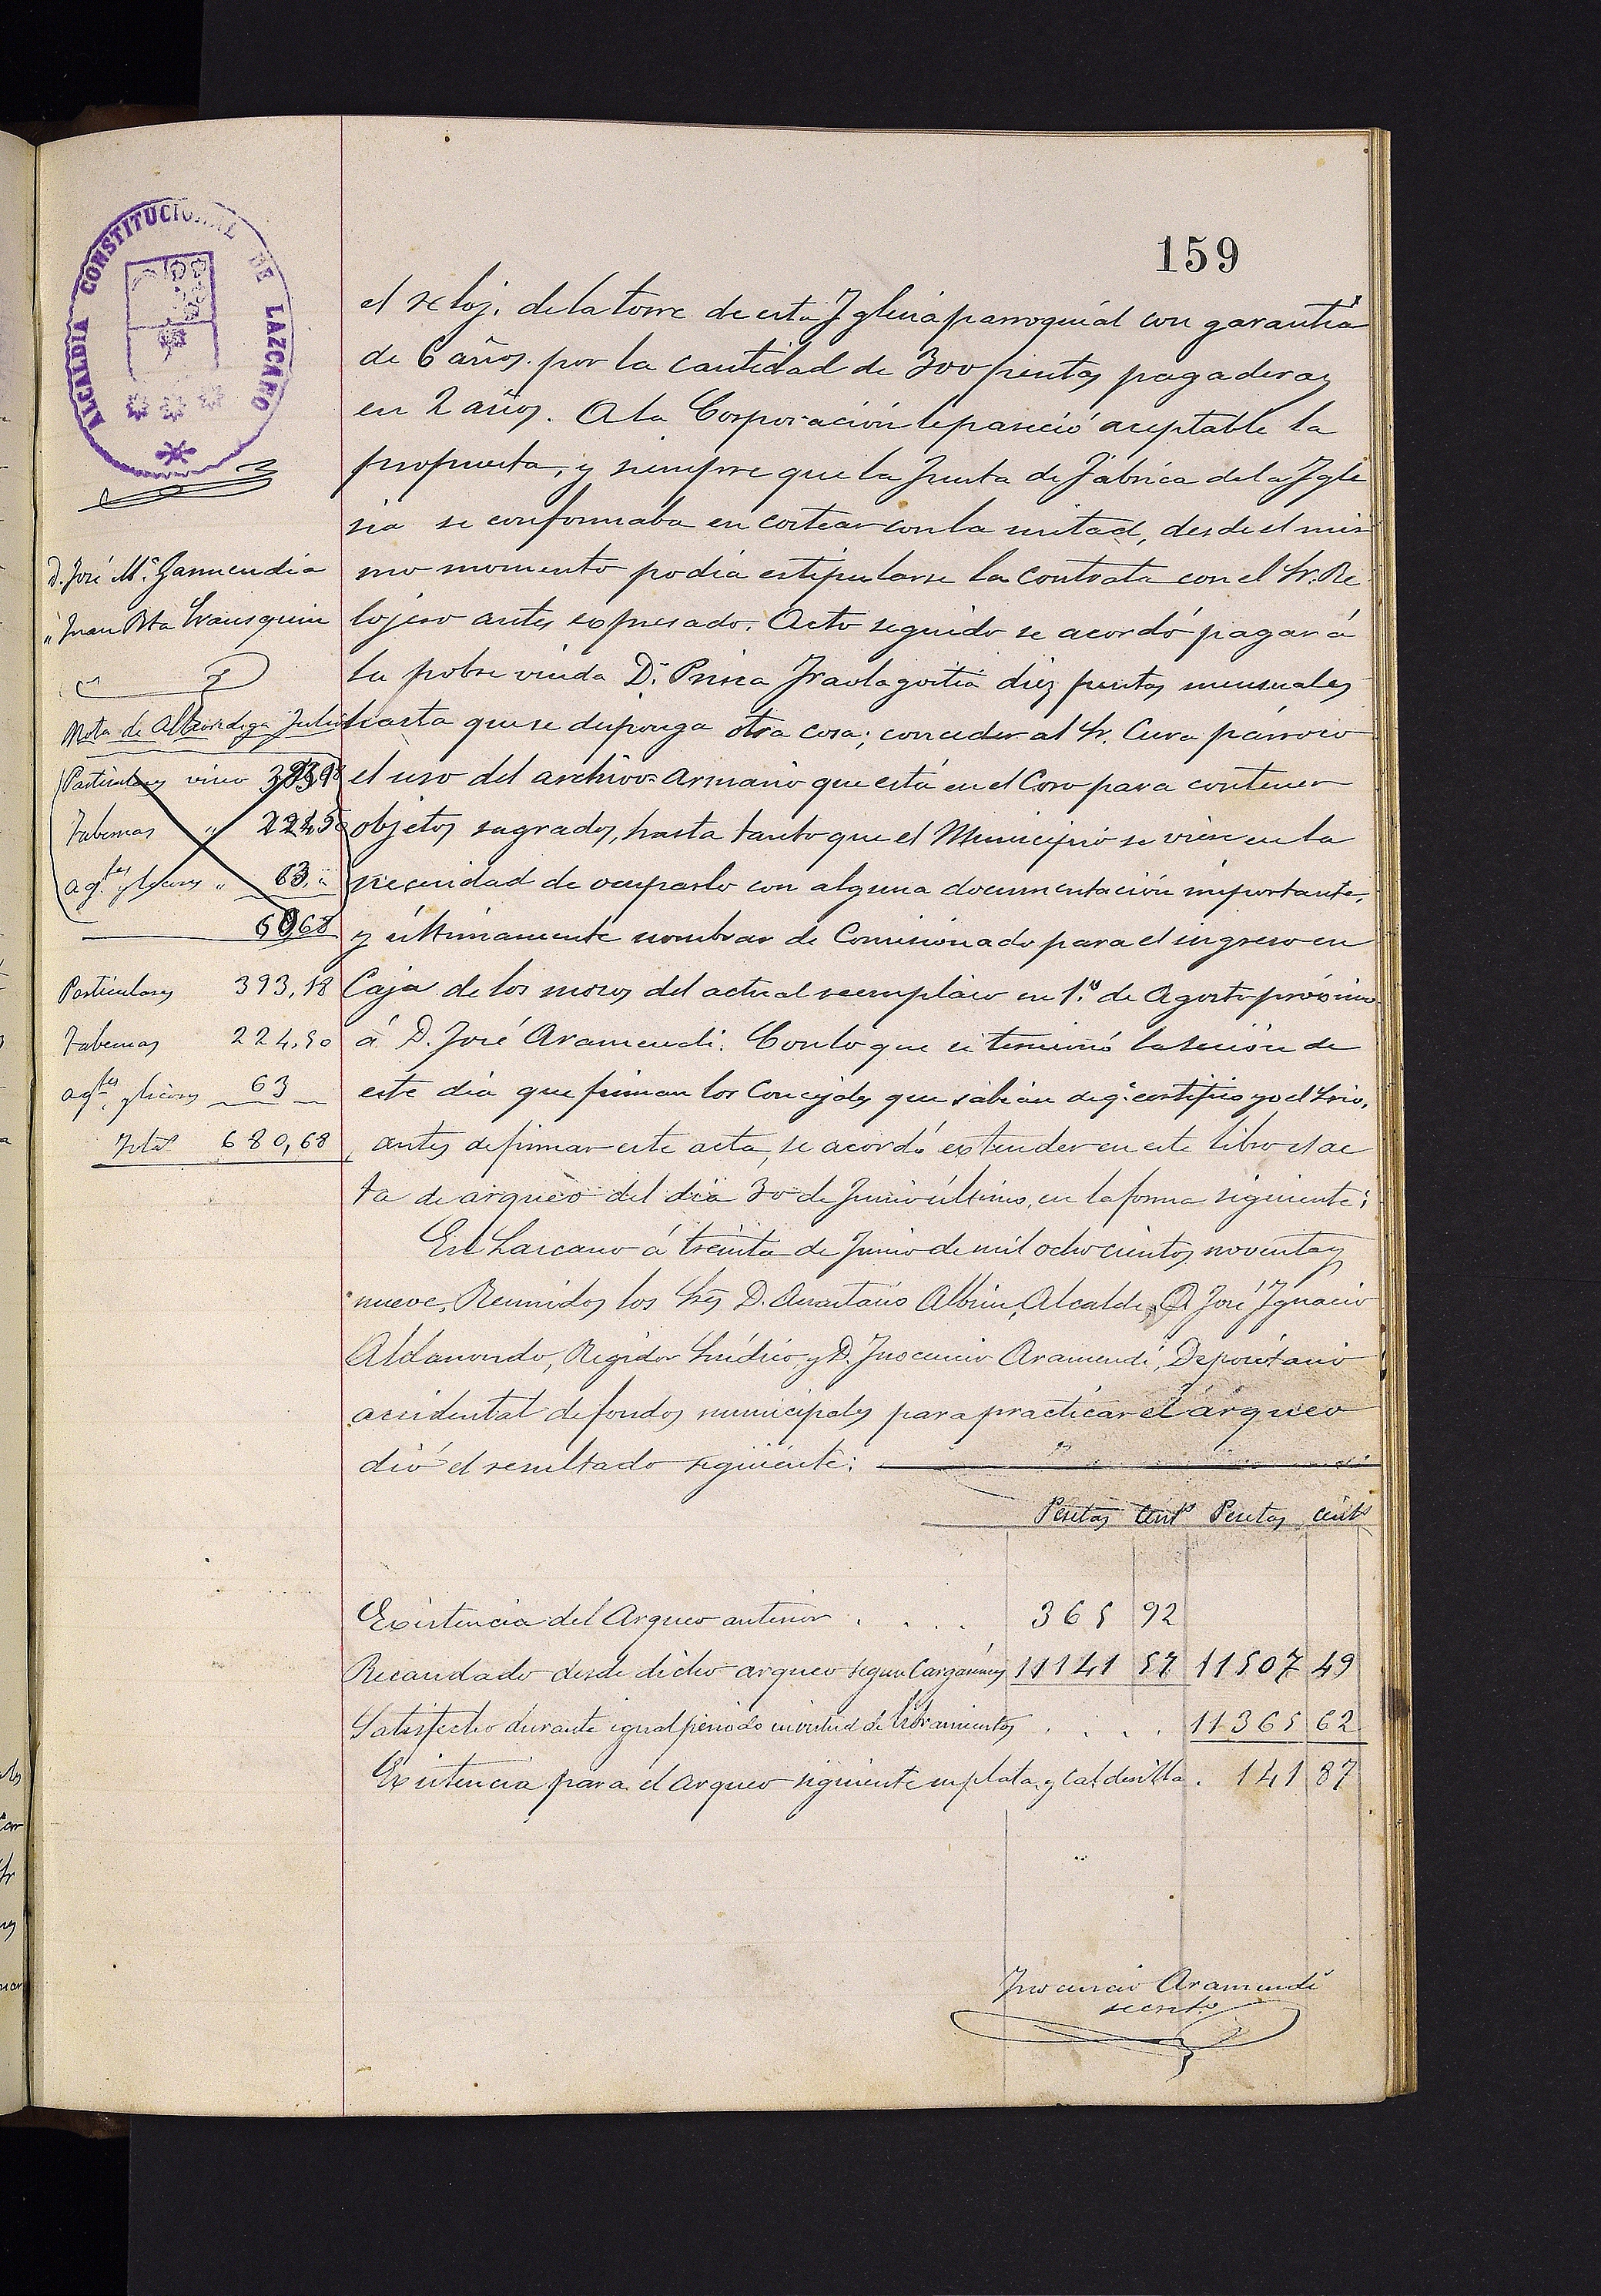 159
ALCALDIA CONSTITUCIONAL DE LAZCANO
el reloj. de la torre de esta Iglesia parroquiál con garantía
de 6 años. por la cantidad de 300 pesetas pagaderas
en 2 años. A la Corporación le pareció aceptable la
propuesta, y siempre que la Junta de Fabrica de la Igle
sia se conformaba en costear con la mitad, desde el mis
mo momento podia estipularse la contrata con el Sr. Re
lojero antes expresado. Acto seguido se acordó pagar á
la pobre viuda Dª Prisca Iraolagoitia diez pesetas mensuales
hasta que se disponga otra cosa; conceder al Sr. Cura párroco
el uso del archivo=armario que está en el Coro para contener
objetos sagrados, hasta tanto que el Municipio se viese en la
necesidad de ocuparlo con alguna documentación importante,
y últimamente nombrar de Comisionado para el ingreso en
Caja de los mozos del actual reemplazo en 1º de Agosto próximo
á D. José Aramendi. Con lo que se terminó la sesión de
este dia que firman los Concejales que sabian de q. certifico yo el Srio.
antes de firmar este acta, se acordó extender en este libro el ac
ta de arqueo del dia 30 de Junio último, en la forma siguiente:
En Lazcano á treinta de Junio de mil ochocientos noventa y
nueve, Reunidos los Sres D. Anastasio Albisu, Alcalde, D. José Ignacio
Aldanondo, Regidor Síndico, y D. Inocencio Aramendi, Depositario
accidental de fondos municipales para practicar el arqueo
dió el resultado siguiente:
Pesetas Cents Pesetas cents
Existencia del Arqueo anterior . . . . 365 92
Recaudado desde dicho arqueo segun Cargarémes 11141 57 11507 49
Satisfecho durante igual periodo en virtud de libramientos . . . . 11365 62
Existencia para el arqueo siguiente en plata y calderilla . 141 87
Inocencio Aramendi
secreto
D. José Mª Garmendia
" Juan Bta Irausquin
Nota de Alhondiga Julio
Particulares vino
Tabernas " 224,50
agtes y licores " 63 "
Particulares 393,18
Tabernas 224,50
agtes y licores 63
Total 680,68